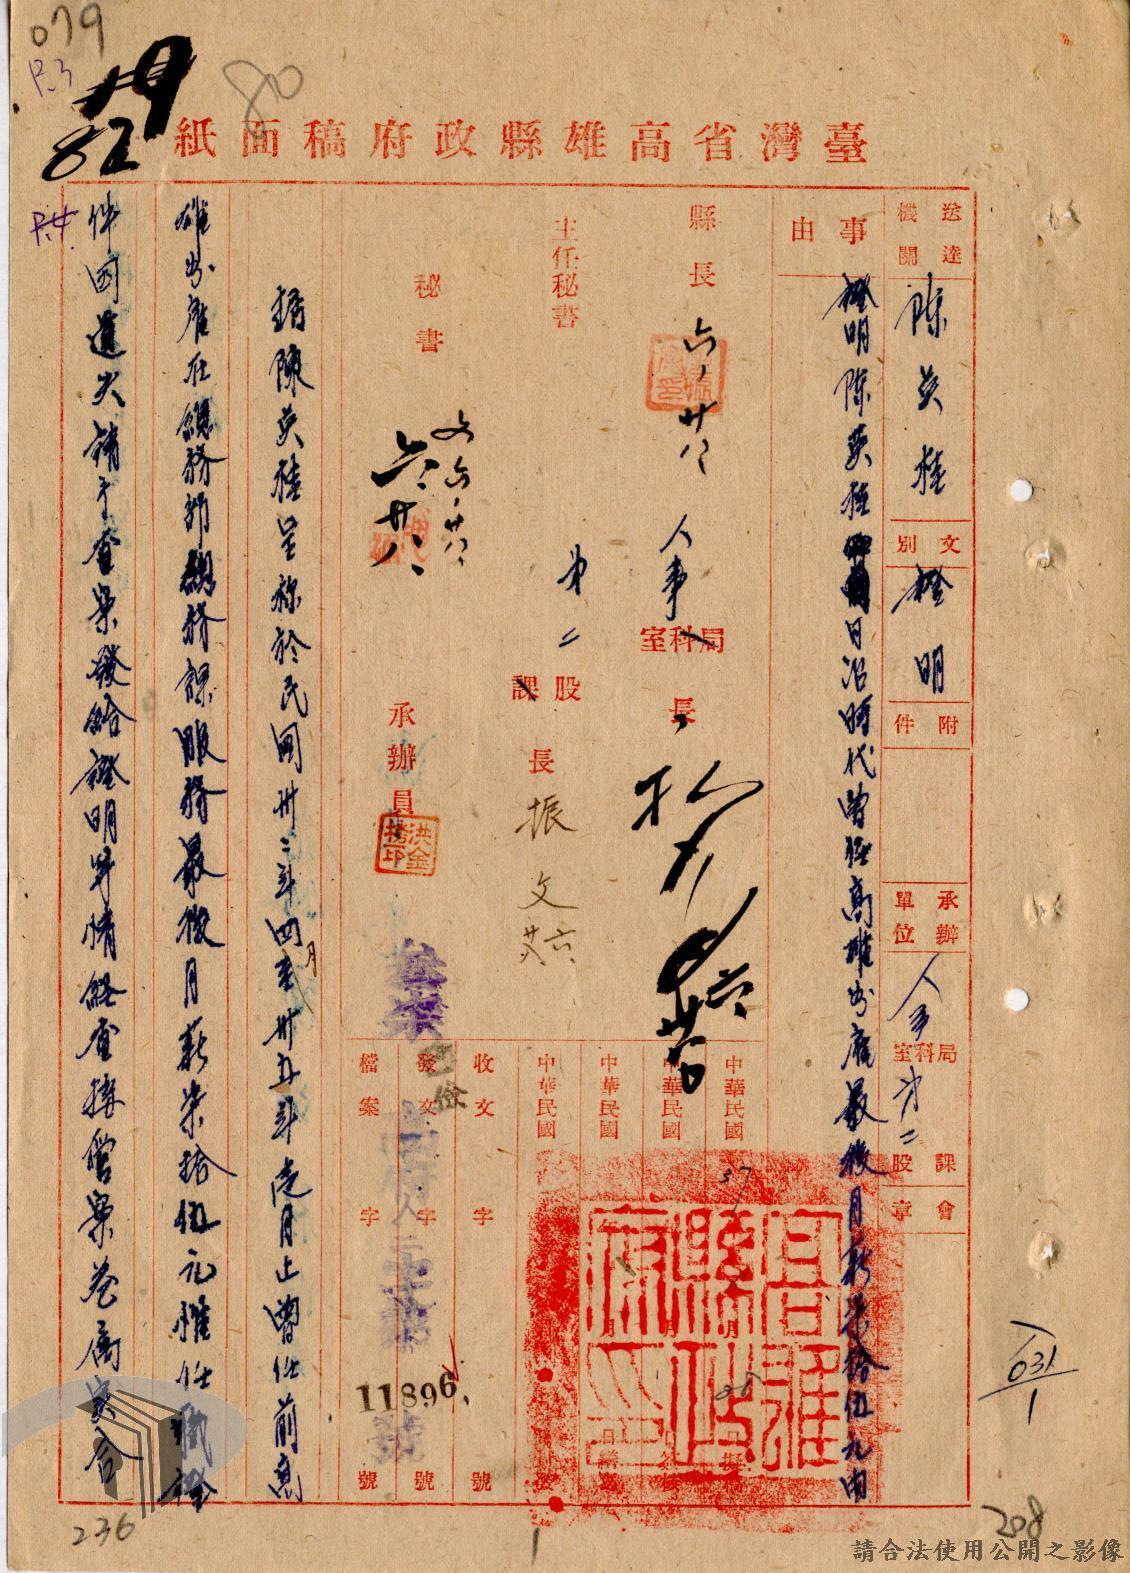 079
P.3
80
79
82
P.4
臺灣省高雄縣政府稿面紙
送達機關
陳英桂
文別
證明
附件
承辦單位
人事
局科室
第二
課股
會章
事由
證明陳英桂日治時代曾任高雄州廳最後月薪柒拾伍元由
縣長
六、廿八
人事
局科室長
主任秘書
第二
股課長
振文
六廿八
秘書
文六、廿八
六、廿八
承辦員
洪金榜印
中華民國
37
6月
28
中華民國
中華民國
中華民國
收文
字
號
發文
字
號
檔案
字
號
11896
高雄縣政府印
據陳英桂呈称於民國卅二年四月至卅五年元月止曾任前高
雄州廳在總務部總務課服務最後月薪柒拾伍元惟任職證
件因遺失請予查案發給證明等情経查接管案卷属實合
236
1
208
031
1
請合法使用公開之影像